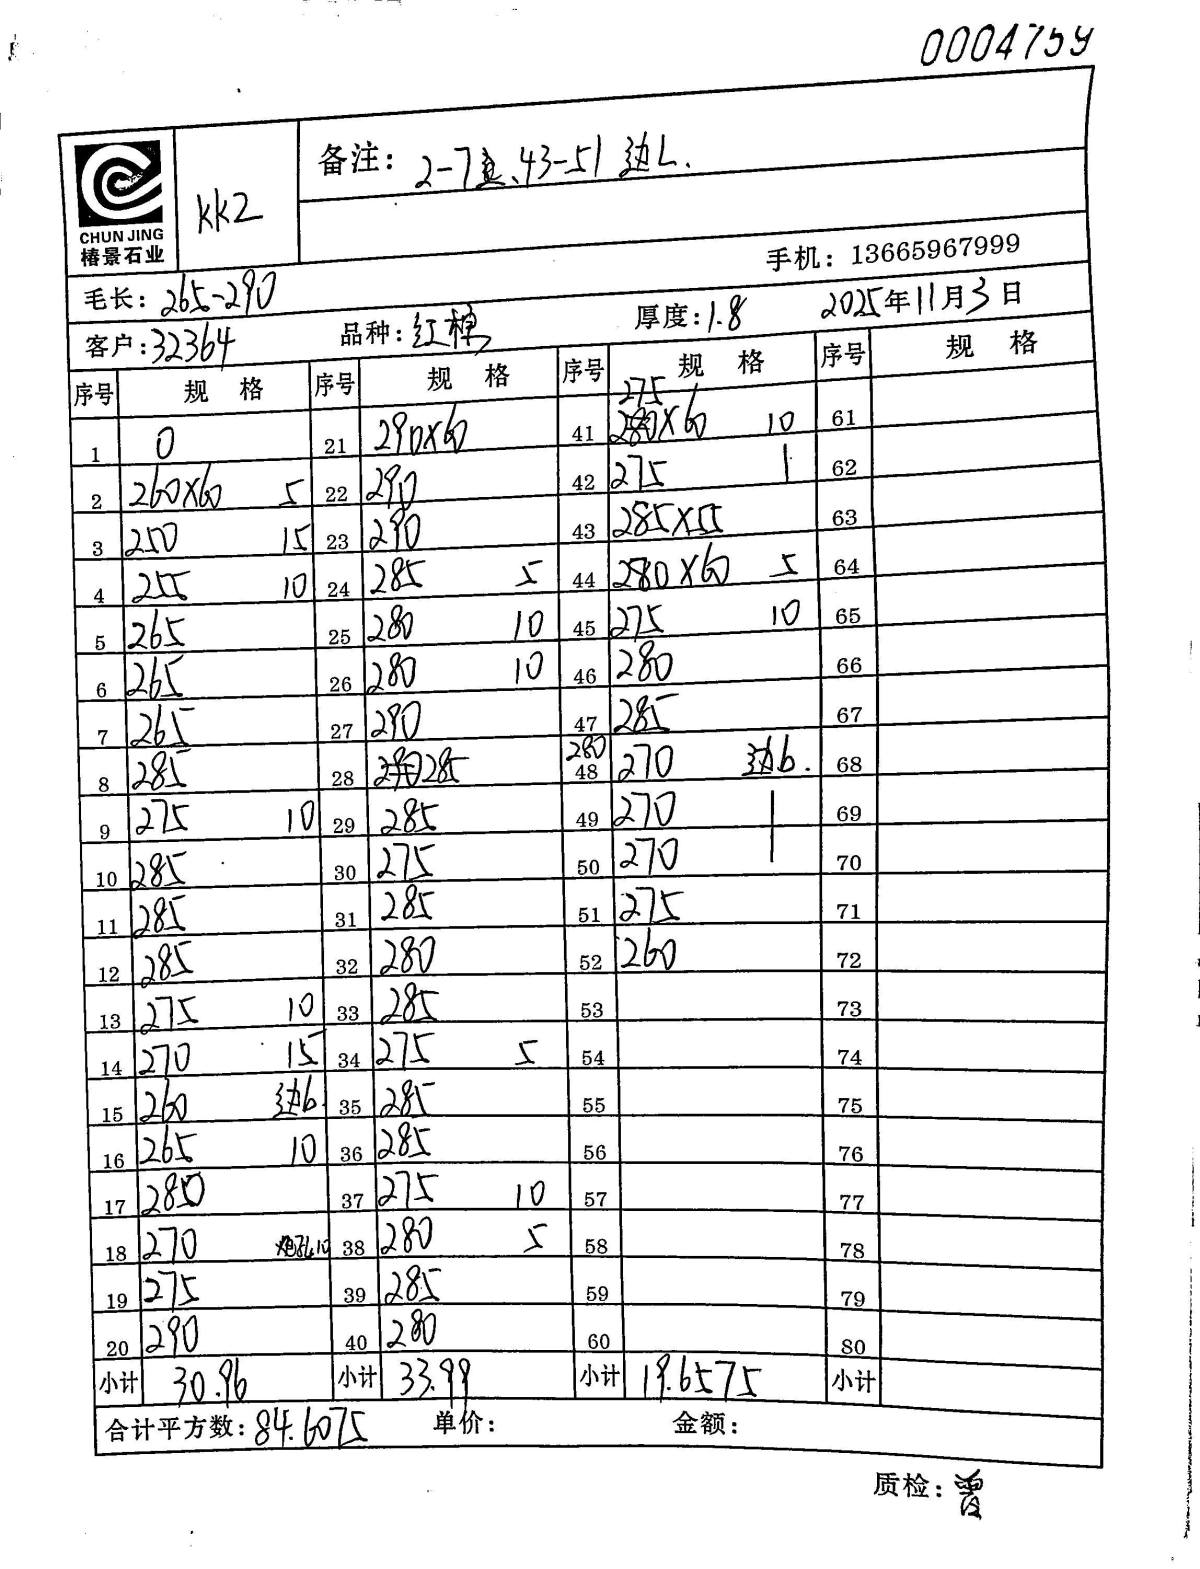 0004759
CHUN JING
椿景石业
KK2
备注: 2-7 、43-51 边L.
手机: 13665967999
毛长: 265-290
客户: 32364 品种: 红棉 厚度: 1.8 2025年11月3日
序号 规格 序号 规格 序号 规格 序号 规格
275
1 0 21 290X60 41 280X60 10 61
2 260X60 5 22 290 42 275 1 62
3 250 15 23 290 43 285X55 63
4 255 10 24 285 5 44 280X60 5 64
5 265 25 280 10 45 275 10 65
6 265 26 280 10 46 280 66
7 265 27 290 47 285 67
280
8 285 28 290 285 48 270 边b. 68
9 275 10 29 285 49 270 | 69
10 285 30 275 50 270 | 70
11 285 31 285 51 275 71
12 285 32 280 52 260 72
13 275 10 33 285 53 73
14 270 15 34 275 5 54 74
15 260 边b. 35 285 55 75
16 265 10 36 285 56 76
17 280 37 275 10 57 77
18 270 炮孔10 38 280 5 58 78
19 275 39 285 59 79
20 290 40 280 60 80
小计 30.96 小计 33.99 小计 19.6575 小计
合计平方数: 84.6075 单价: 金额:
质检: 曾